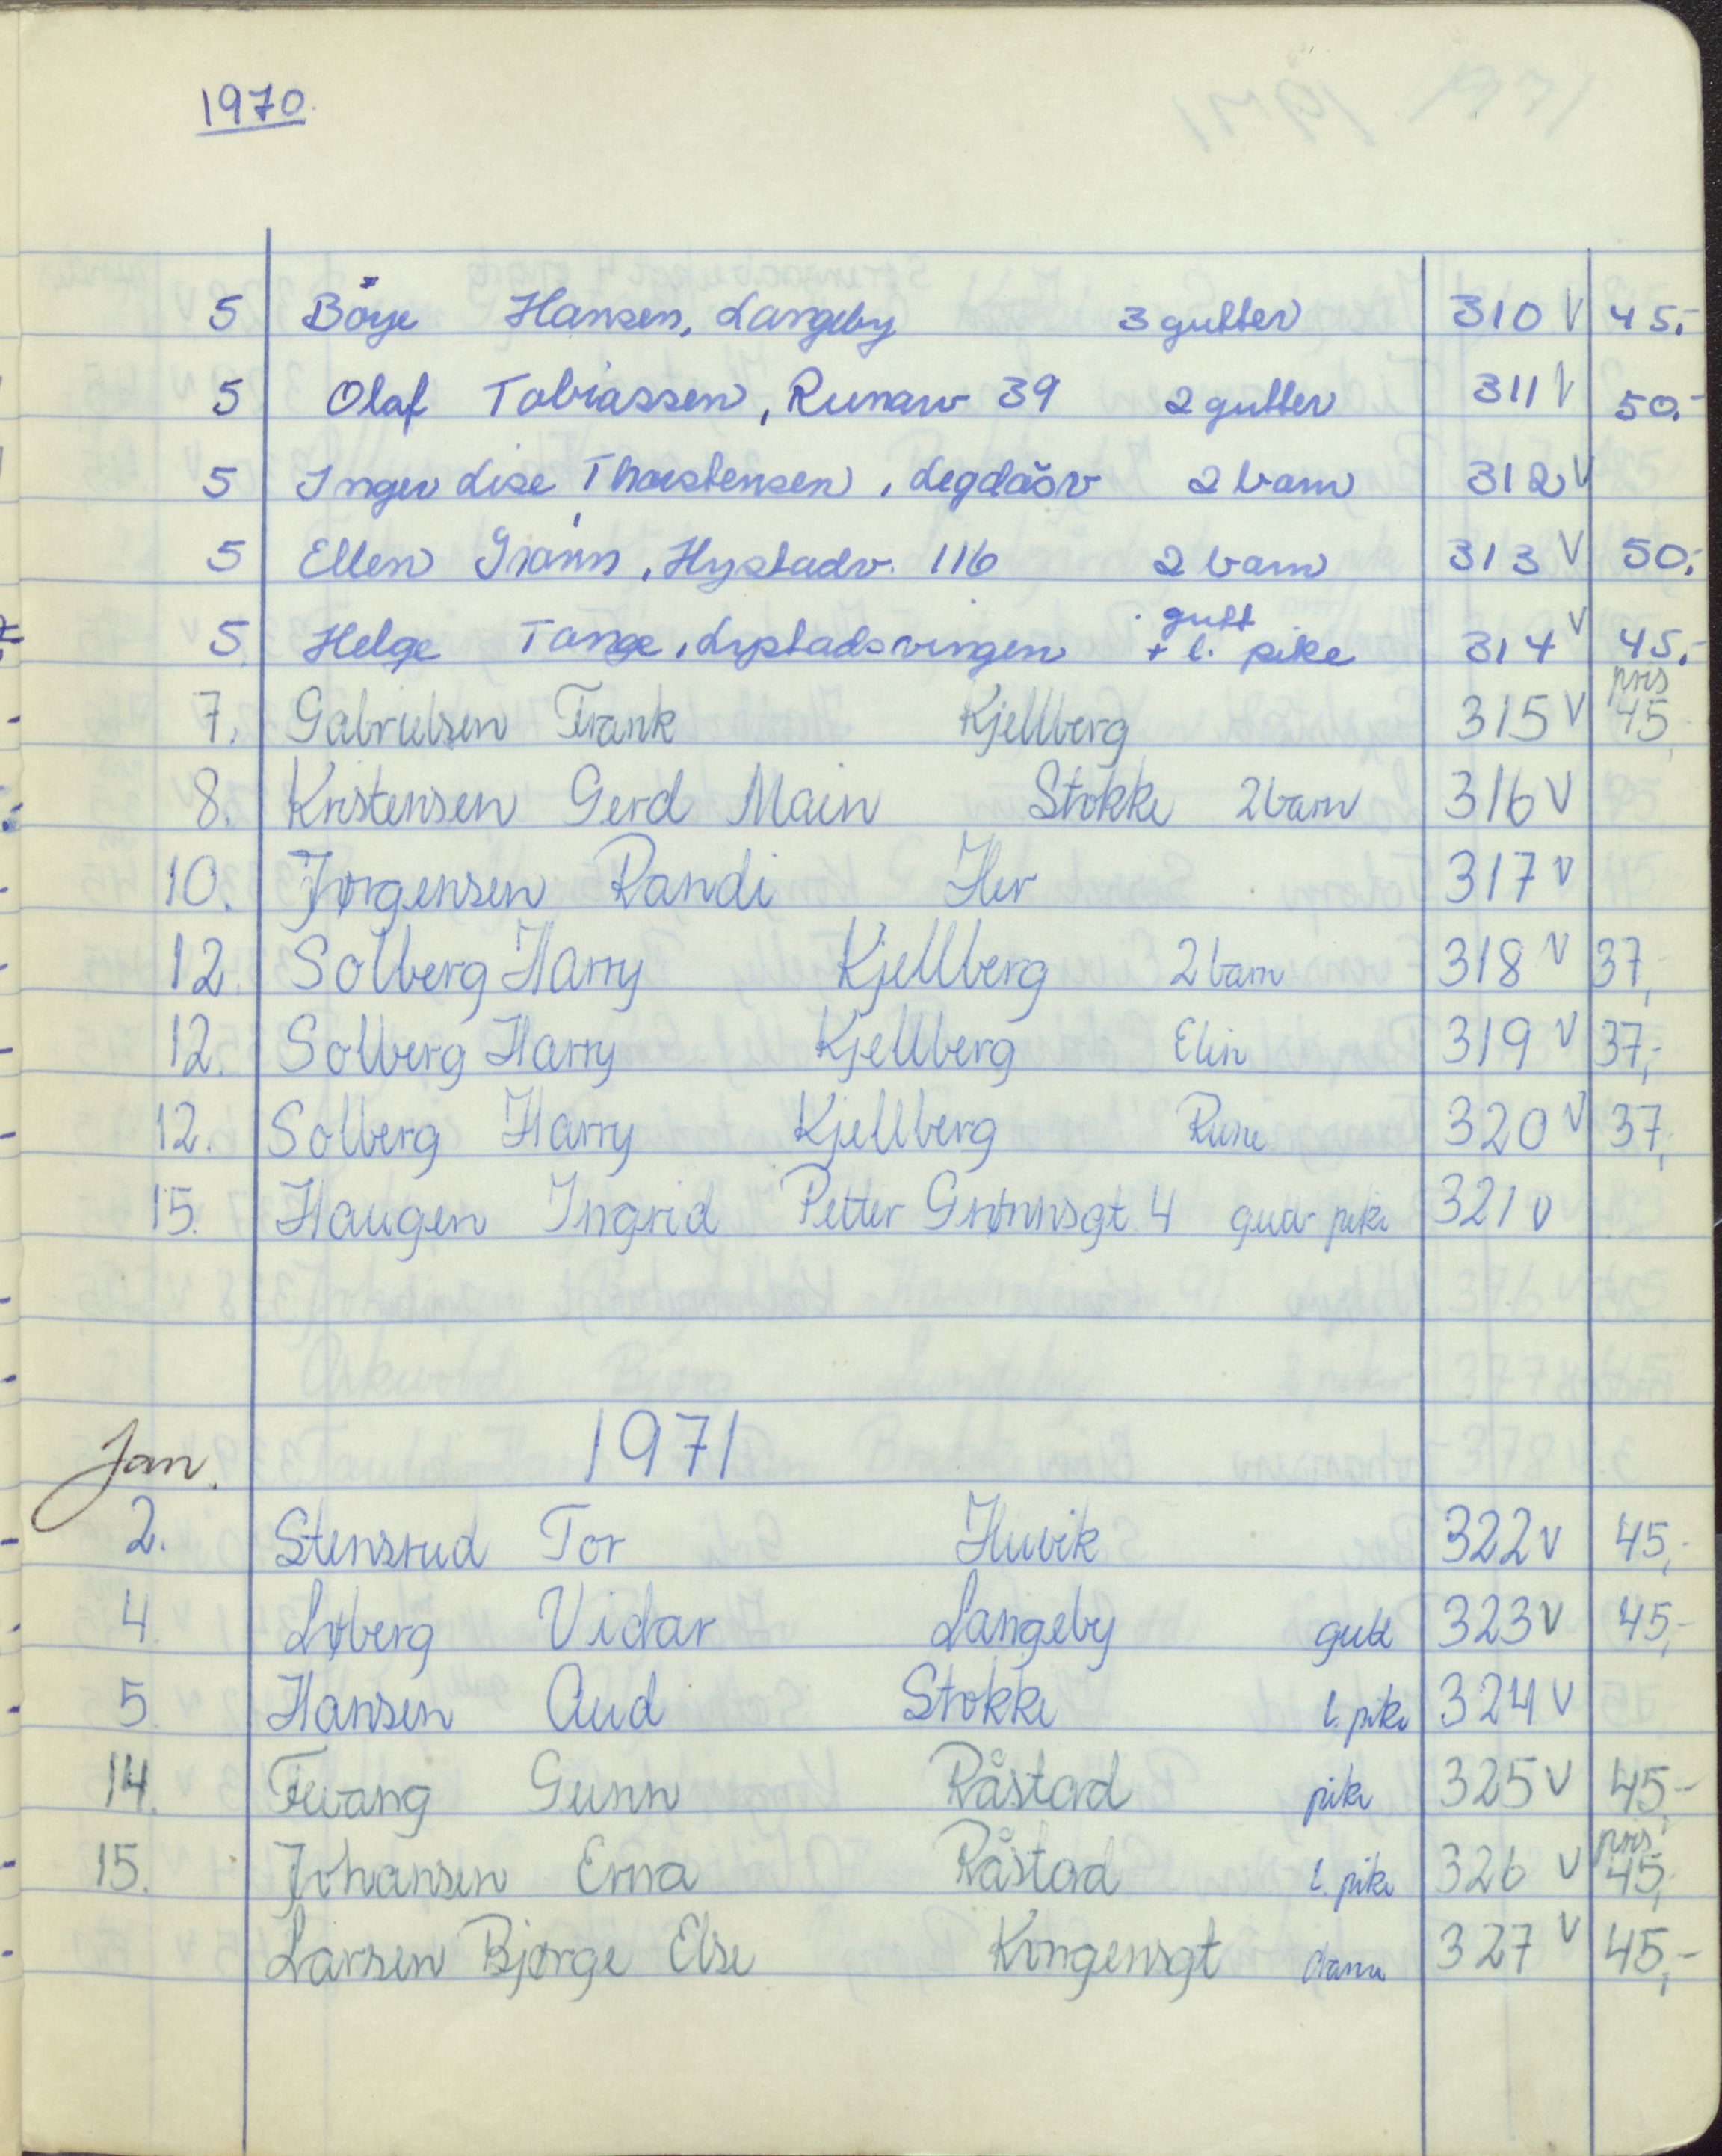 1970.
5 Böye Hansen, Langeby 3 gutter 310 V 45,-
5 Olaf Tobiassen, Runarv 39 2 gutter 311 V 50,-
5 Inger Lise Thorstensen, Legdåsv 2 barn 312 V
5 Ellen Grönn, Hystadv. 116 2 barn 313 V 50,-
gutt
5 Helge Tange, Lystadsvingen + l. pike 314 V 45,-
pris
7. Gabrielsen Frank Kjellberg 315 V 45,
8. Kristensen Gerd Main Stokke 2 barn 316 V
10. Jørgensen Randi Her 317 V
12. Solberg Harry Kjellberg 2 barn 318 V 37,-
12. Solberg Harry Kjellberg Elin 319 V 37,-
12. Solberg Harry Kjellberg Rune 320 V 37,
15. Haugen Ingrid Petter Grønnsgt 4 pike 321 V
Jan. 1971
2. Stensrud Tor Huvik 322 V 45,-
4. Løberg Vidar Langeby gutt 323 V 45,-
5. Hansen Aud Stokke l. pike 324 V
14. Gunn Råstad pike 325 V 45,-
pris
15. Johansen Erna Råstad l. pike 326 V 45,
Larsen Bjørge Else Kongensgt dame 327 V 45,-